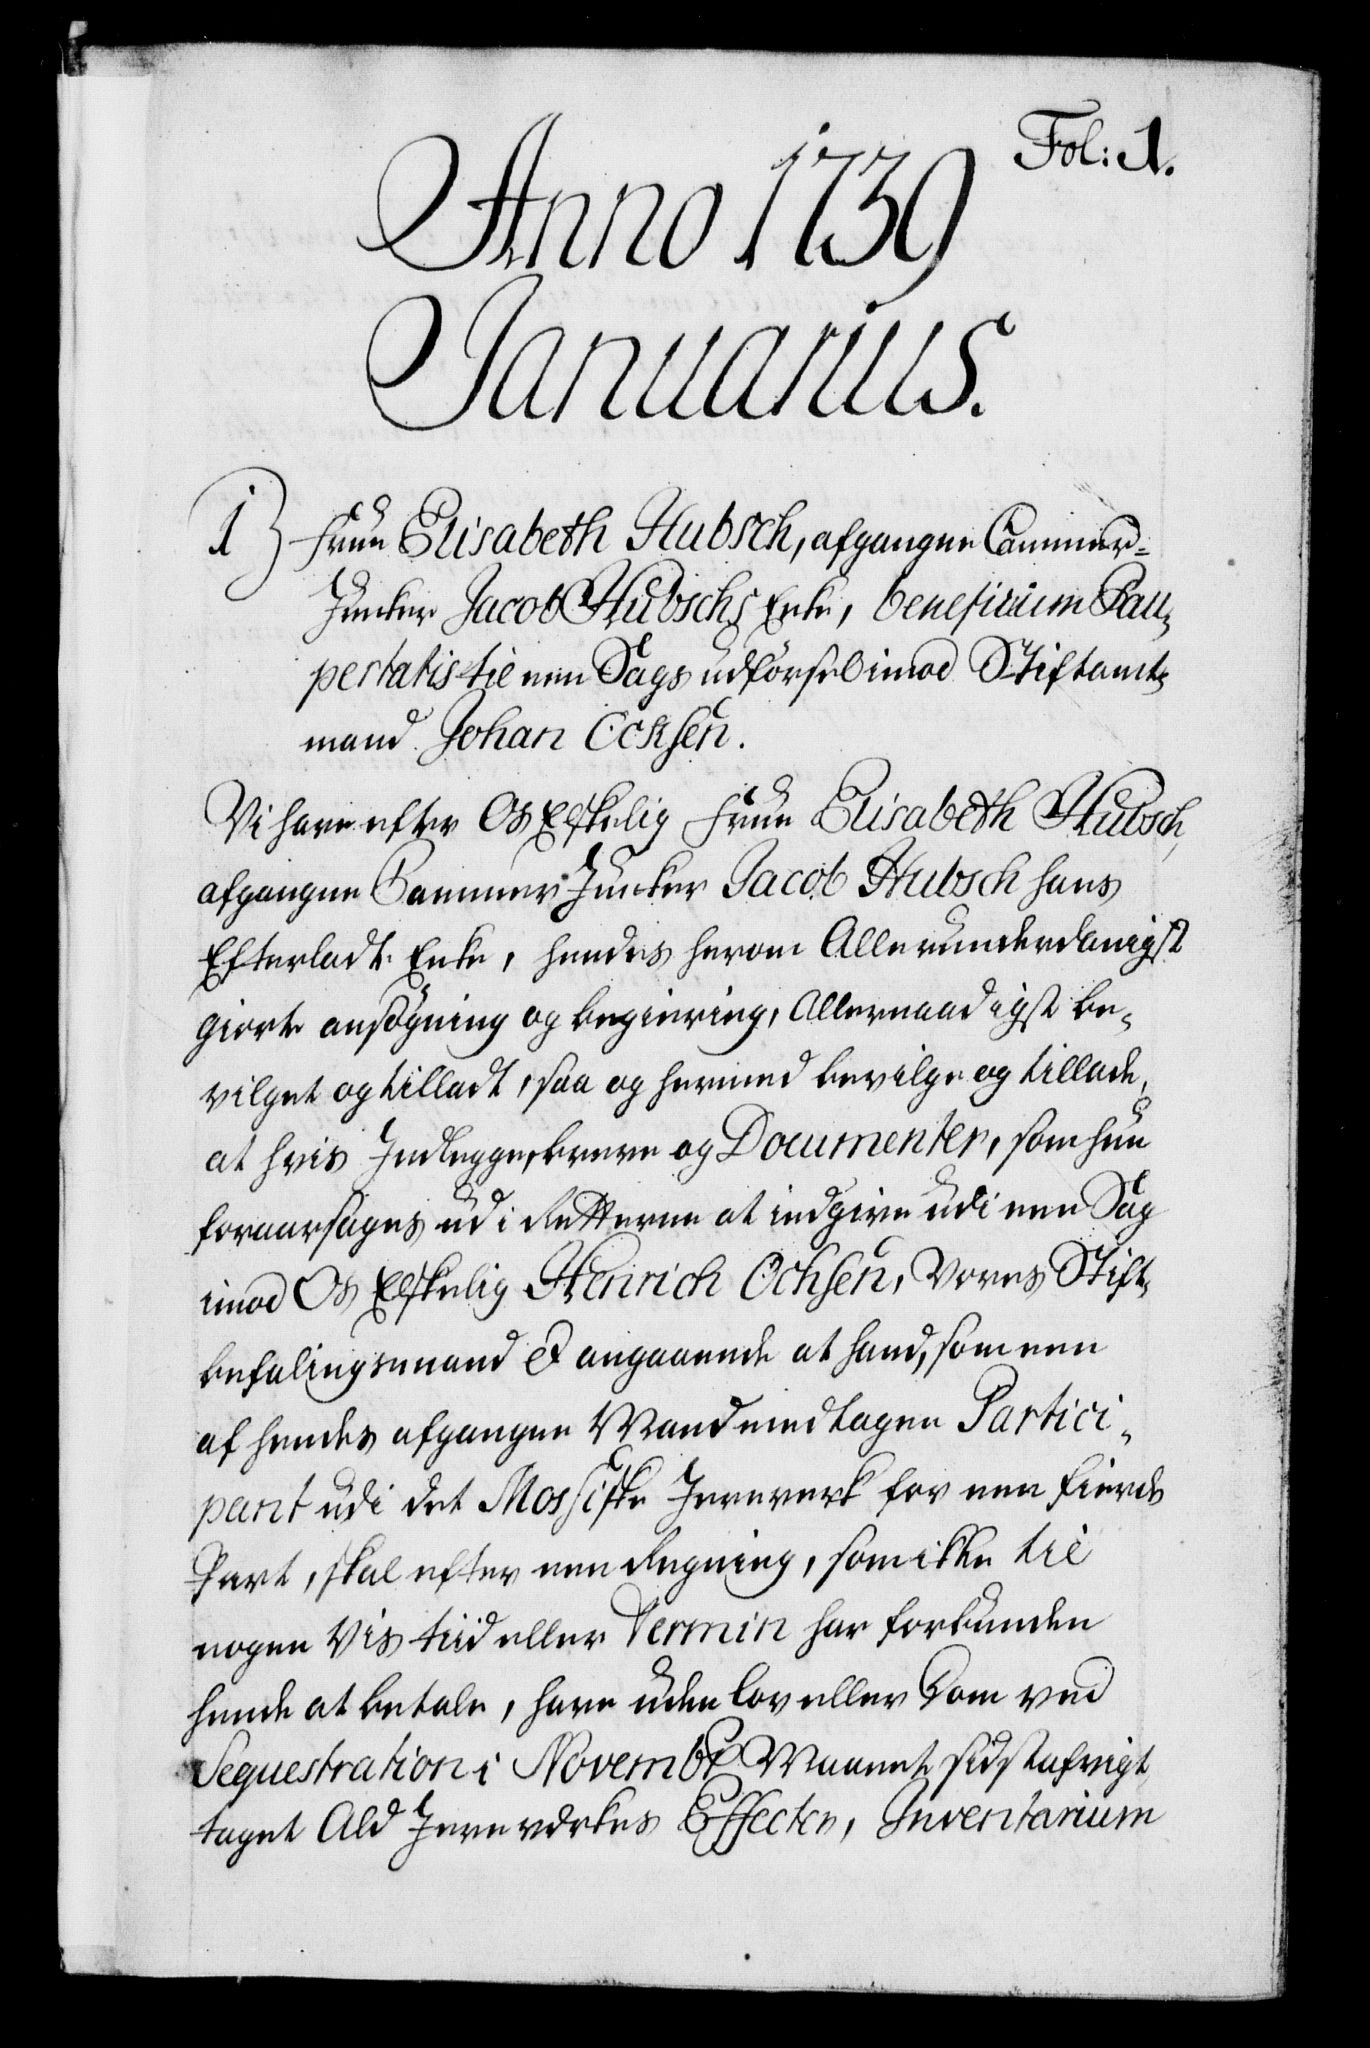 Fol: 1.
Anno 1739
Januarius.
1) Frue Elisabeth Hubsch, afgangne Cammer-
Junker Jacob Hubschs Enke, beneficium Pau-
pertatis til een Sags udførsel imod Stiftamt-
mand Johan Ochsen.
Vi have efter Os Elskelig Frue Elisabeth Hubsch,
afgangne Cammer-Junker Jacob Hubsch hans
Efterladte Enke, hendes herom Allerunderdanigst
giorte ansøgning og begiering, Allernaadigst be-
vilget og tilladt, saa og hermed bevilge og tillade,
at hvis Indlegge, breve og Documenter, som hun
foraarsages ud i Retterne at indgive udi een Sag
imod Os Elskelig Henrich Ochsen, Vores Stift-
befalingsmand angaaende at hand, som een
af hendes afgangne Mand medtagen Partici-
pant udi det Mossiske Jernverk for een fierde
Part, skal efter een Regning, som ikke til
nogen Vis tiid eller Termin har forbunden
hende at betale, have uden lov eller Dom ved
Sequestration i Novembr Maanet sidstafvigt
taget Ald Jernverkes Effecter, Inventarium